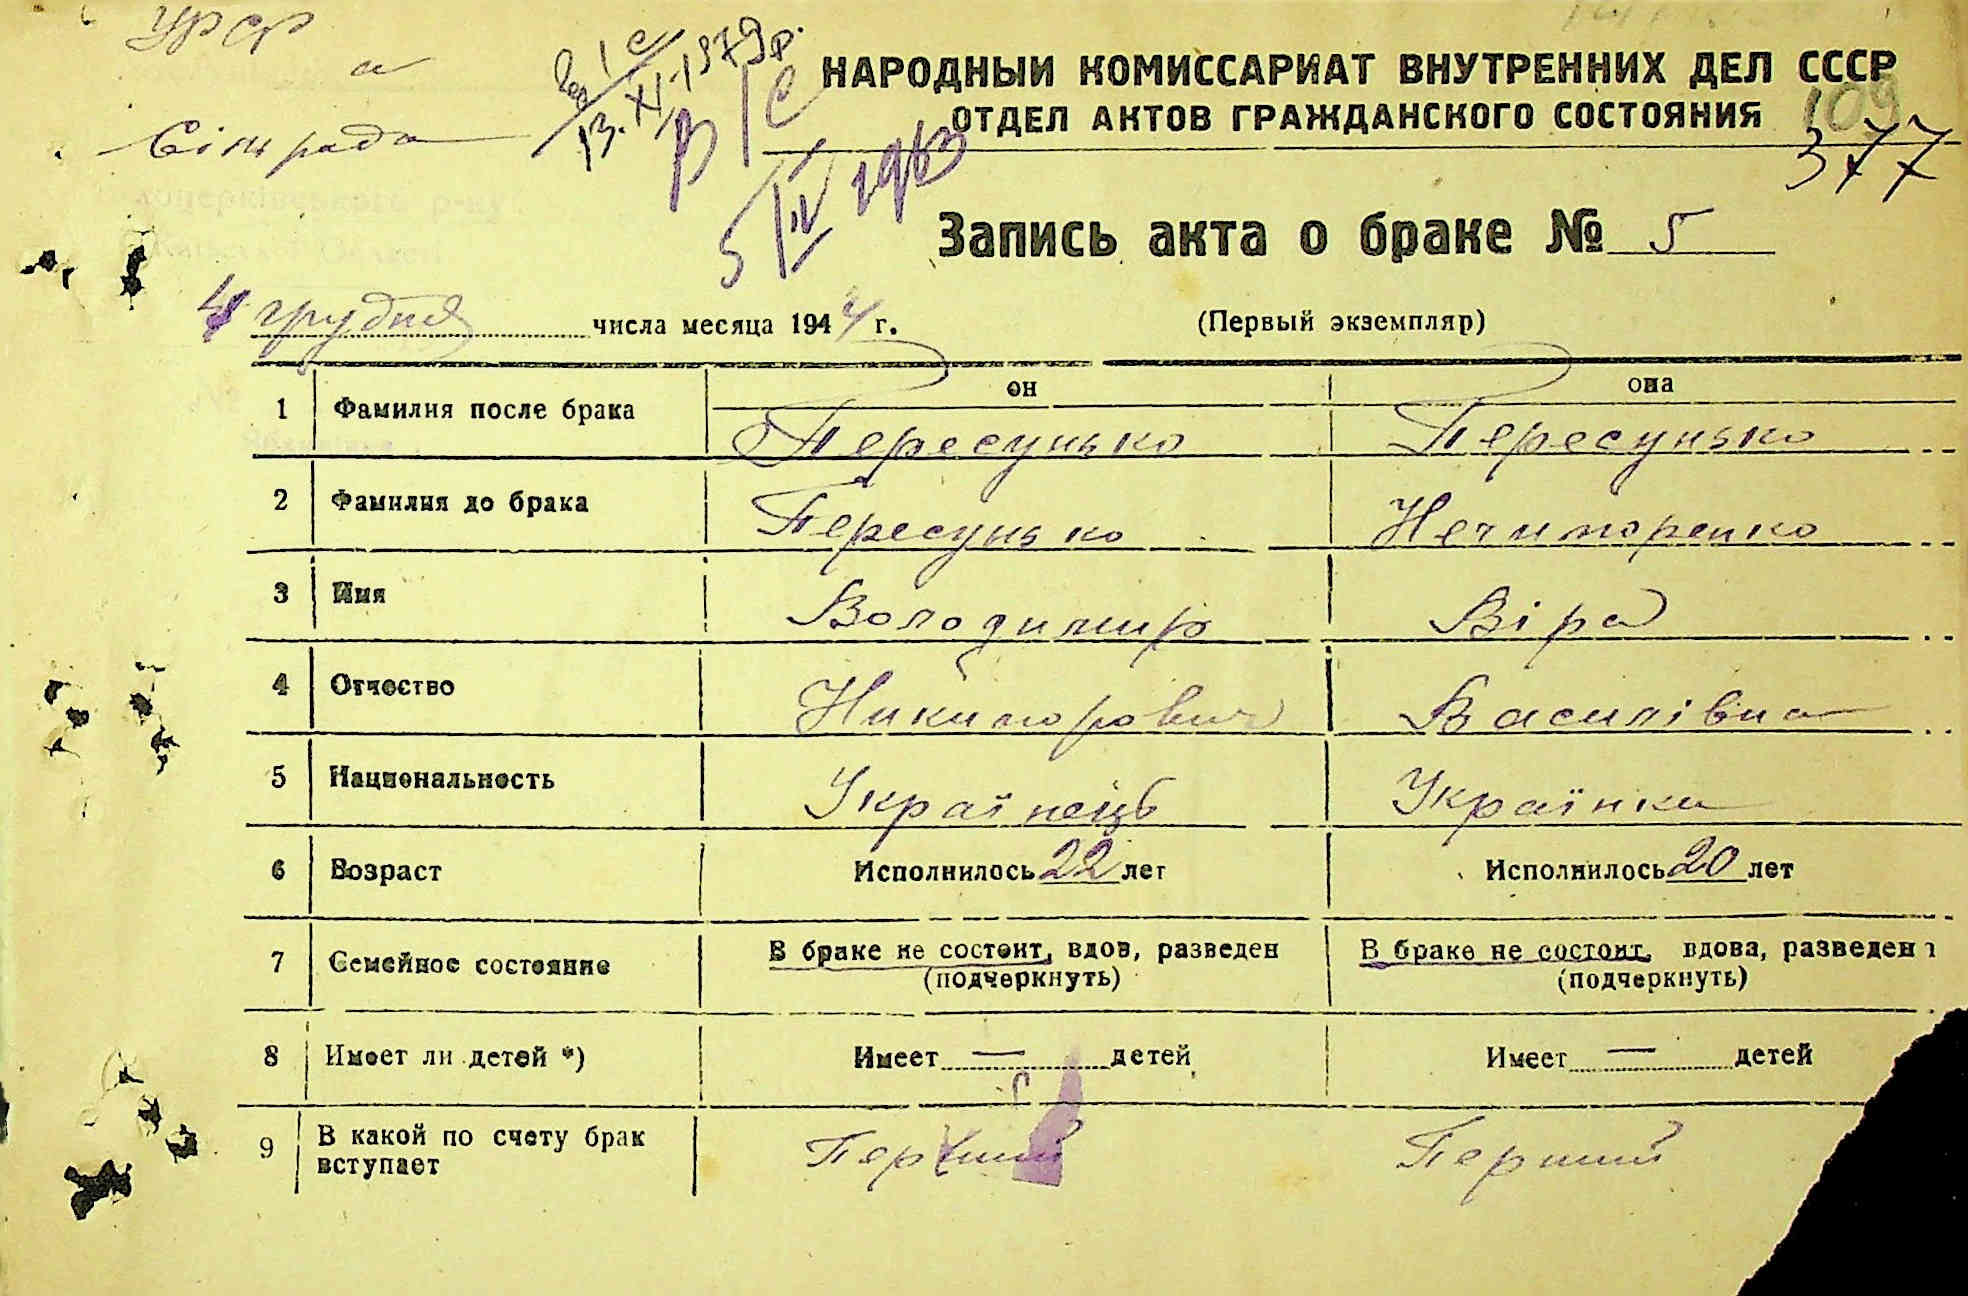 УРСР
а
Сільрада
13.XI.1979р.
В/С
5/IV 1963
НАРОДНЫЙ КОМИССАРИАТ ВНУТРЕННИХ ДЕЛ СССР
ОТДЕЛ АКТОВ ГРАЖДАНСКОГО СОСТОЯНИЯ
109
377
Запись акта о браке № 5
4 грудня числа месяца 1944 г.
(Первый экземпляр)
он она
1 Фамилия после брака Пересунько Пересунько
2 Фамилия до брака Пересунько Нечипоренко
3 Имя Володимир Віра
4 Отчество Никипорович Василівна
5 Национальность Українець Українка
6 Возраст Исполнилось 22 лет Исполнилось 20 лет
7 Семейное состояние В браке не состоит, вдов, разведен В браке не состоит, вдова, разведен
(подчеркнуть) (подчеркнуть)
8 Имеет ли детей *) Имеет — детей Имеет — детей
9 В какой по счету брак
вступает Перший Перший